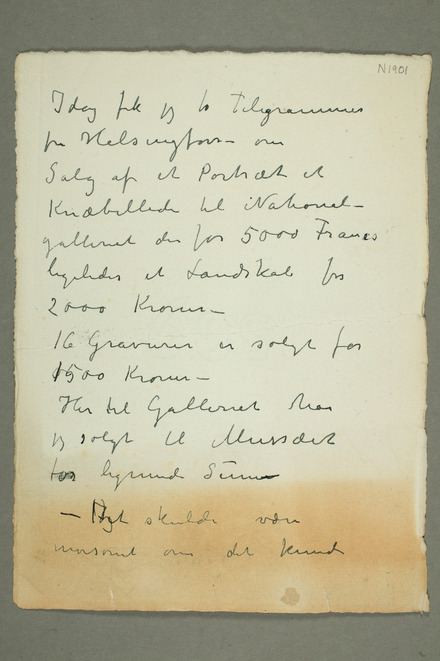 N 1901
Idag fik jeg to Telegrammer
fra Helsingfors – om
Salg af et Portræt et
Knæbillede til National–
galleriet der for 5000 Francs
ligeledes et Landskab for
2000 Kroner –
16 Gravurer er solgt for
1500 Kroner –
Her til Galleriet har
jeg solgt til Musæet
for lignende Summer
– Nyt skulde være
morsomt om det kunde